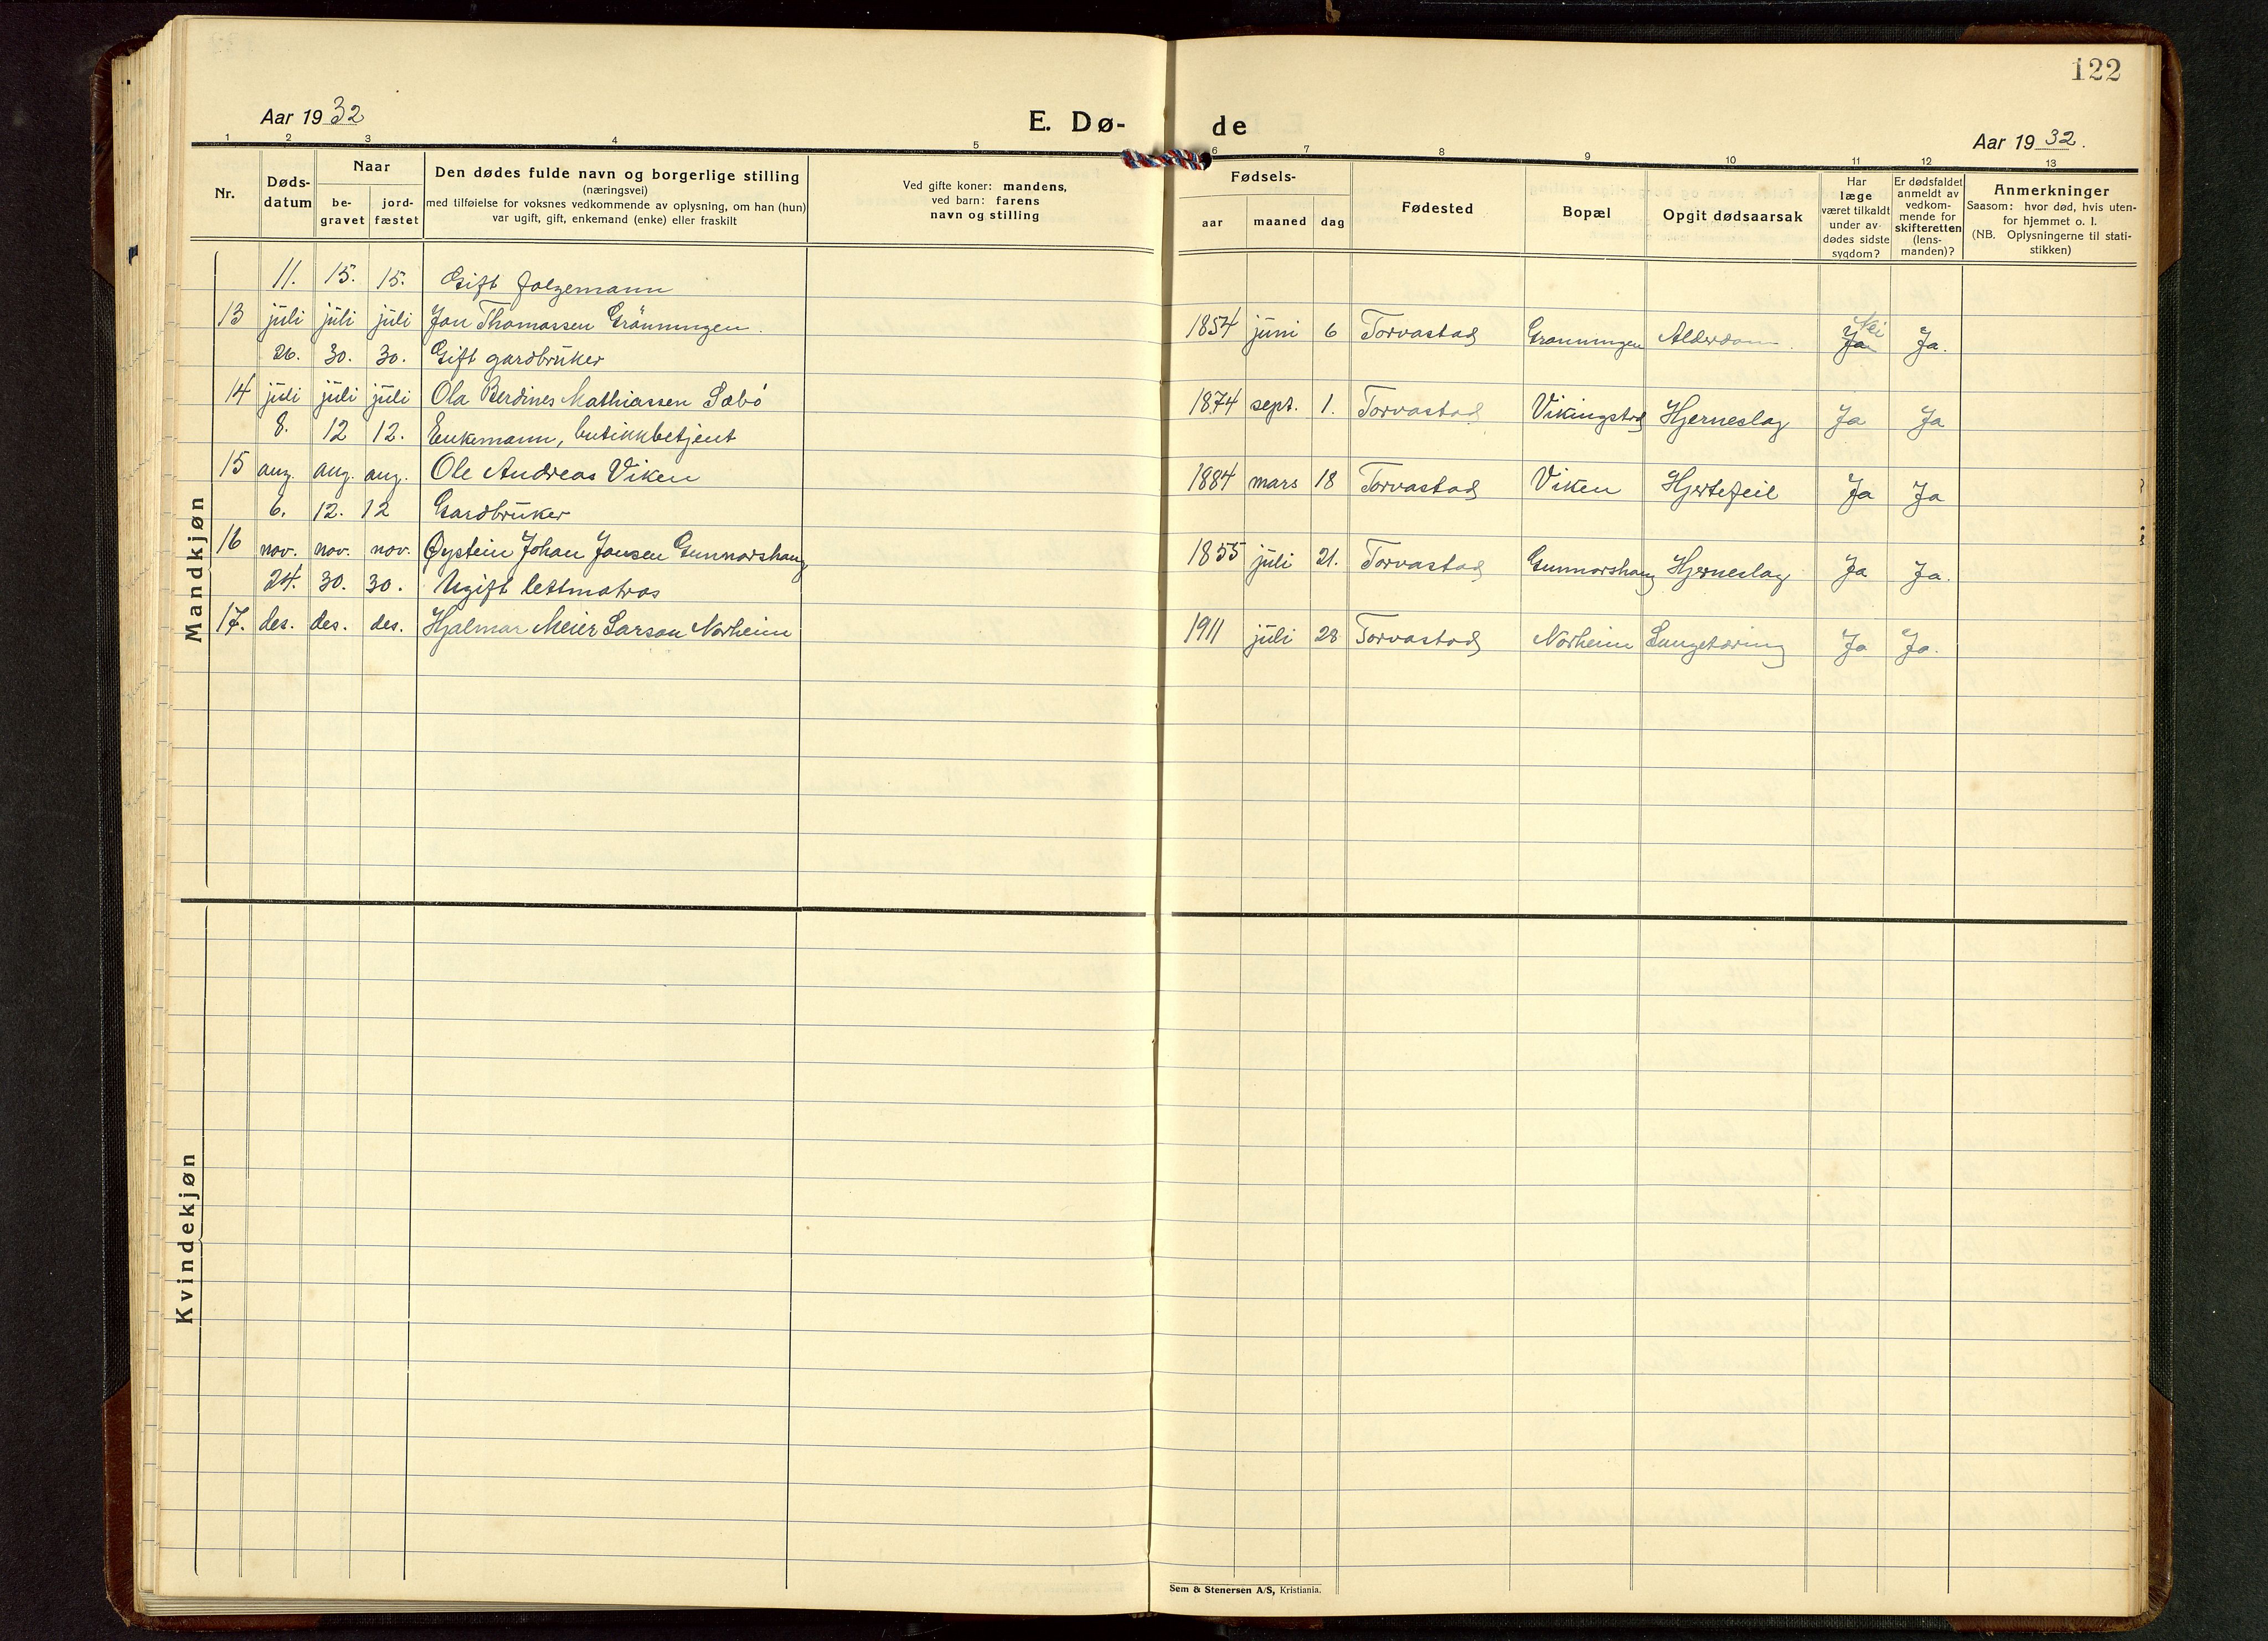 122
Aar 1932
E. Dø-
de
Aar 1932.
1 2 3 4 5 6 7 8 9 10 11 12 13
Nr.
Døds-
datum
Naar
be-
gravet
jord-
fæstet
Den dødes fulde navn og borgerlige stilling
(næringsvei)
med tilføielse for voksnes vedkommende av oplysning, om han (hun)
var ugift, gift, enkemand (enke) eller fraskilt
Ved gifte koner: mandens,
ved barn: farens
navn og stilling
Fødsels-
aar maaned dag
Fødested
Bopæl
Opgit dødsaarsak
Har
læge
været tilkaldt
under av-
dødes sidste
sygdom?
Er dødsfaldet
anmeldt av
vedkom-
mende for
skifteretten
(lens-
manden)?
Anmerkninger
Saasom: hvor død, hvis uten-
for hjemmet o. l.
(NB. Oplysningerne til stati-
stikken)
Mandkjøn
11. 15. 15. Gift folgemann
Nei
13 juli juli juli Jon Thomassen Grønningen. 1854 juni 6 Torvastad Grønningen Alderdom. Ja Ja.
26. 30. 30. Gift gardbruker
14 juli juli juli Ola Berdines Mathiassen Sæbø 1874 sept. 1. Torvastad Vikingstad Hjerneslag Ja Ja
8. 12 12. Enkemann, butikkbetjent
15 aug. aug. aug. Ole Andreas Viken 1884 mars 18 Torvastad Viken Hjertefeil Ja Ja
6. 12. 12 Gardbruker
16 nov. nov. nov. Øystein Johan Jansen Gunnarshaug 1855 juli 21. Torvastad Gunnarshaug Hjerneslag Ja Ja.
24. 30. 30. Ugift lettmatros
17. des. des. des. Hjalmar Meier Larson Norheim 1911 juli 28 Torvastad Norheim Lungetæring Ja Ja.
Kvindekjøn
Sem & Stenersen A/S, Kristiania.